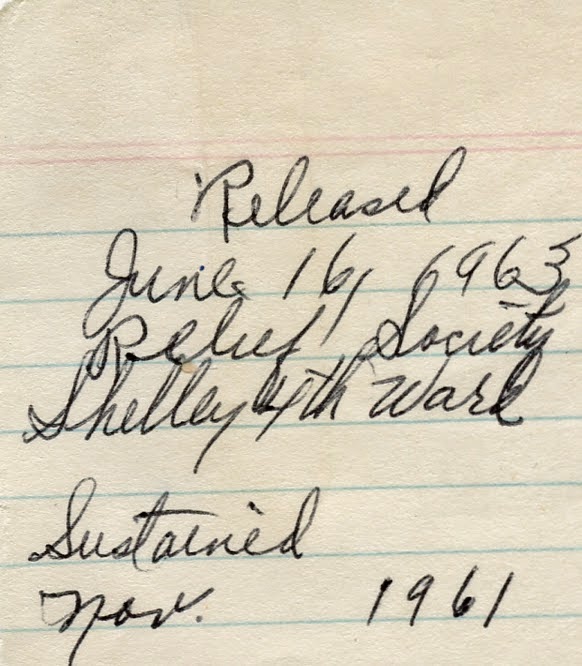 Released
June 16, 1963
Relief Society
Shelley 4th Ward
Sustained
Nov. 1961